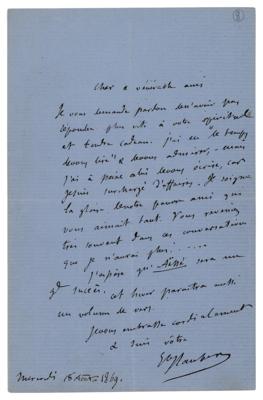 Cher & vénérable ami
Je vous demande pardon de n'avoir pas
répondu plus vite à votre spirituelle
et tendre cadeau. J'ai eu le temps
de vous lire & de vous admirer, - mais
j'ai à peine celui de vous écrire, car
je suis surchargé d'affaires. - Je soigne
la gloire de notre pauvre ami qui
vous aimait tant. Vous reveniez
très souvent dans ces conversations
que je n'aurai plus.....
J'espère qu'Aïssé sera un
gd succès, cet hiver paraîtra aussi
un volume de vers.
Je vous embrasse cordialement
& suis vôtre
Gve Flaubert
Mercredi 18 Août 1869.